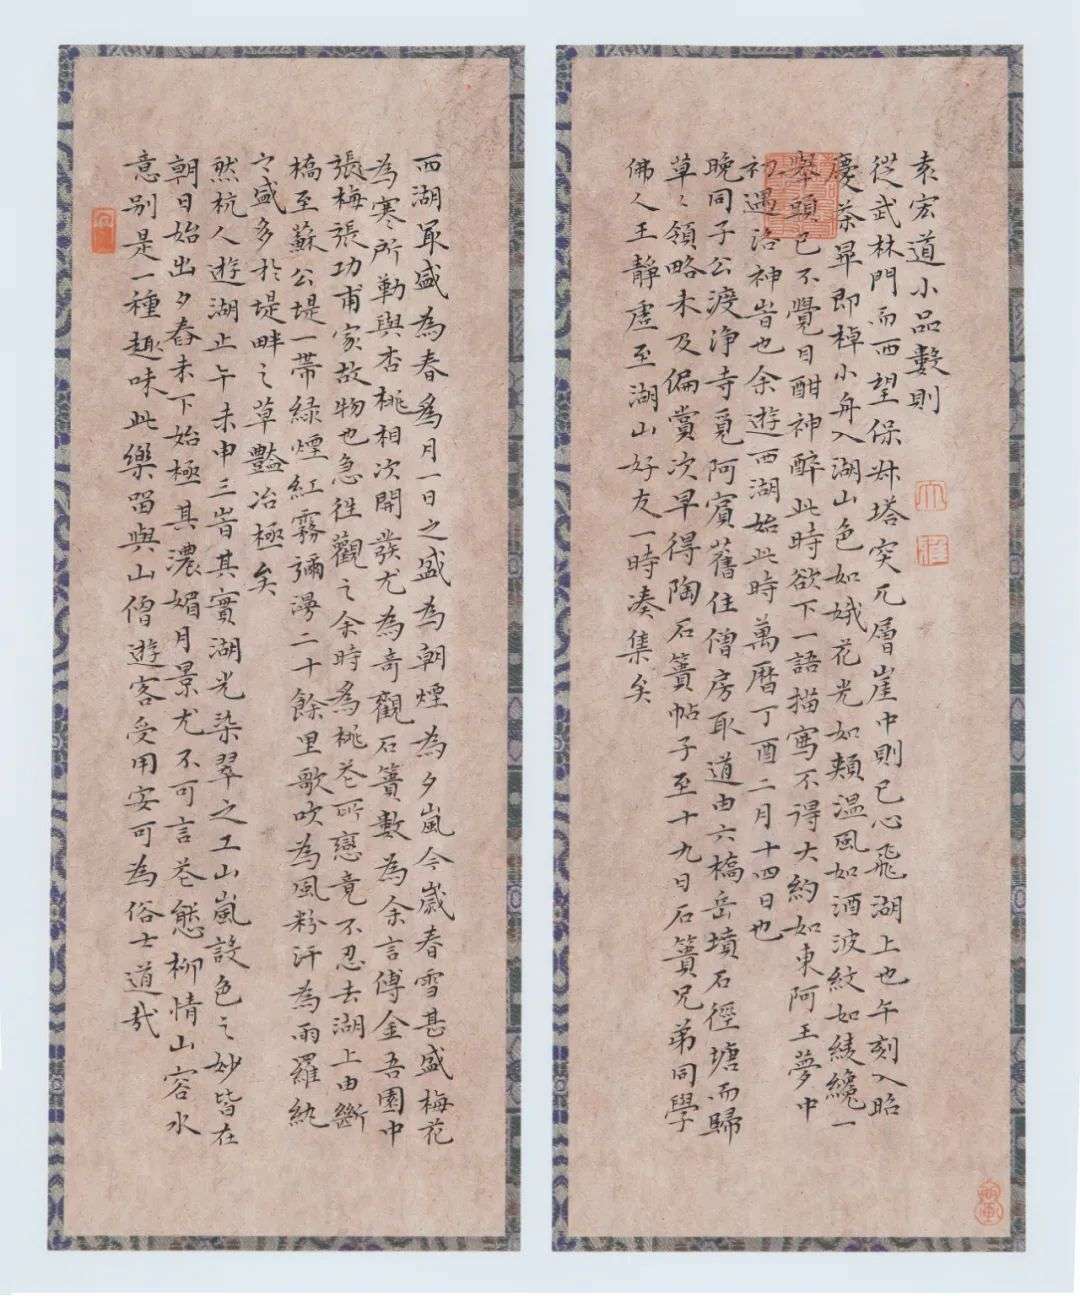 袁宏道小品數則
從武林門而西望保叔塔突兀層崖中則已心飛湖上也午刻入昭
慶茶畢即棹小舟入湖山色如娥花光如頰溫風如酒波紋如綾纔一
舉頭已不覺目酣神醉此時欲下一語描寫不得大約如東阿王夢中
初遇洛神時也余遊西湖始此時萬曆丁酉二月十四日也
晚同子公渡淨寺覓阿賓舊住僧房取道由六橋岳墳石徑塘而歸
草々領略未及偏賞次早得陶石簣帖子至十九日石簣兄弟同學
佛人王靜虛至湖山好友一時湊集矣
西湖最盛為春為月一日之盛為朝煙為夕嵐今歲春雪甚盛梅花
為寒所勒與杏桃相次開發尤為奇觀石簣數為余言傅金吾園中
張梅張功甫家故物也急徃觀之余時為桃花所戀竟不忍去湖上由斷
橋至蘇公堤一帶綠煙紅霧彌漫二十餘里歌吹為風粉汗為雨羅紈
之盛多於堤畔之草豔冶極矣
然杭人遊湖止午未申三時其實湖光染翠之工山嵐設色之妙皆在
朝日始出夕舂未下始極其濃媚月景尤不可言花態柳情山容水
意别是一種趣味此樂留與山僧遊客受用安可為俗士道哉